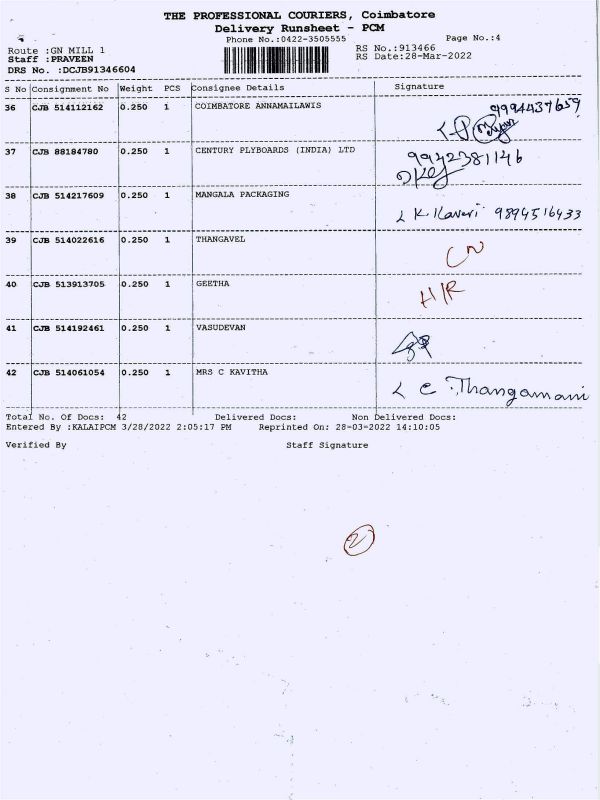 THE PROFESSIONAL COURIERS, Coimbatore
Delivery Runsheet - PCM
Phone No.:0422-3505555 Page No.:4
Route :GN MILL 1 RS No.:913466
Staff :PRAVEEN RS Date:28-Mar-2022
DRS No. :DCJB91346604
S No Consignment No Weight PCS Consignee Details Signature
36 CJB 514112162 0.250 1 COIMBATORE ANNAMAILAWIS 9994437659
37 CJB 88184780 0.250 1 CENTURY PLYBOARDS (INDIA) LTD 9942381146
38 CJB 514217609 0.250 1 MANGALA PACKAGING K. Kaveri 9894516433
39 CJB 514022616 0.250 1 THANGAVEL
40 CJB 513913705 0.250 1 GEETHA H/R
41 CJB 514192461 0.250 1 VASUDEVAN
42 CJB 514061054 0.250 1 MRS C KAVITHA C. Thangamani
Total No. Of Docs: 42 Delivered Docs: Non Delivered Docs:
Entered By :KALAIPCM 3/28/2022 2:05:17 PM Reprinted On: 28-03-2022 14:10:05
Verified By Staff Signature
2